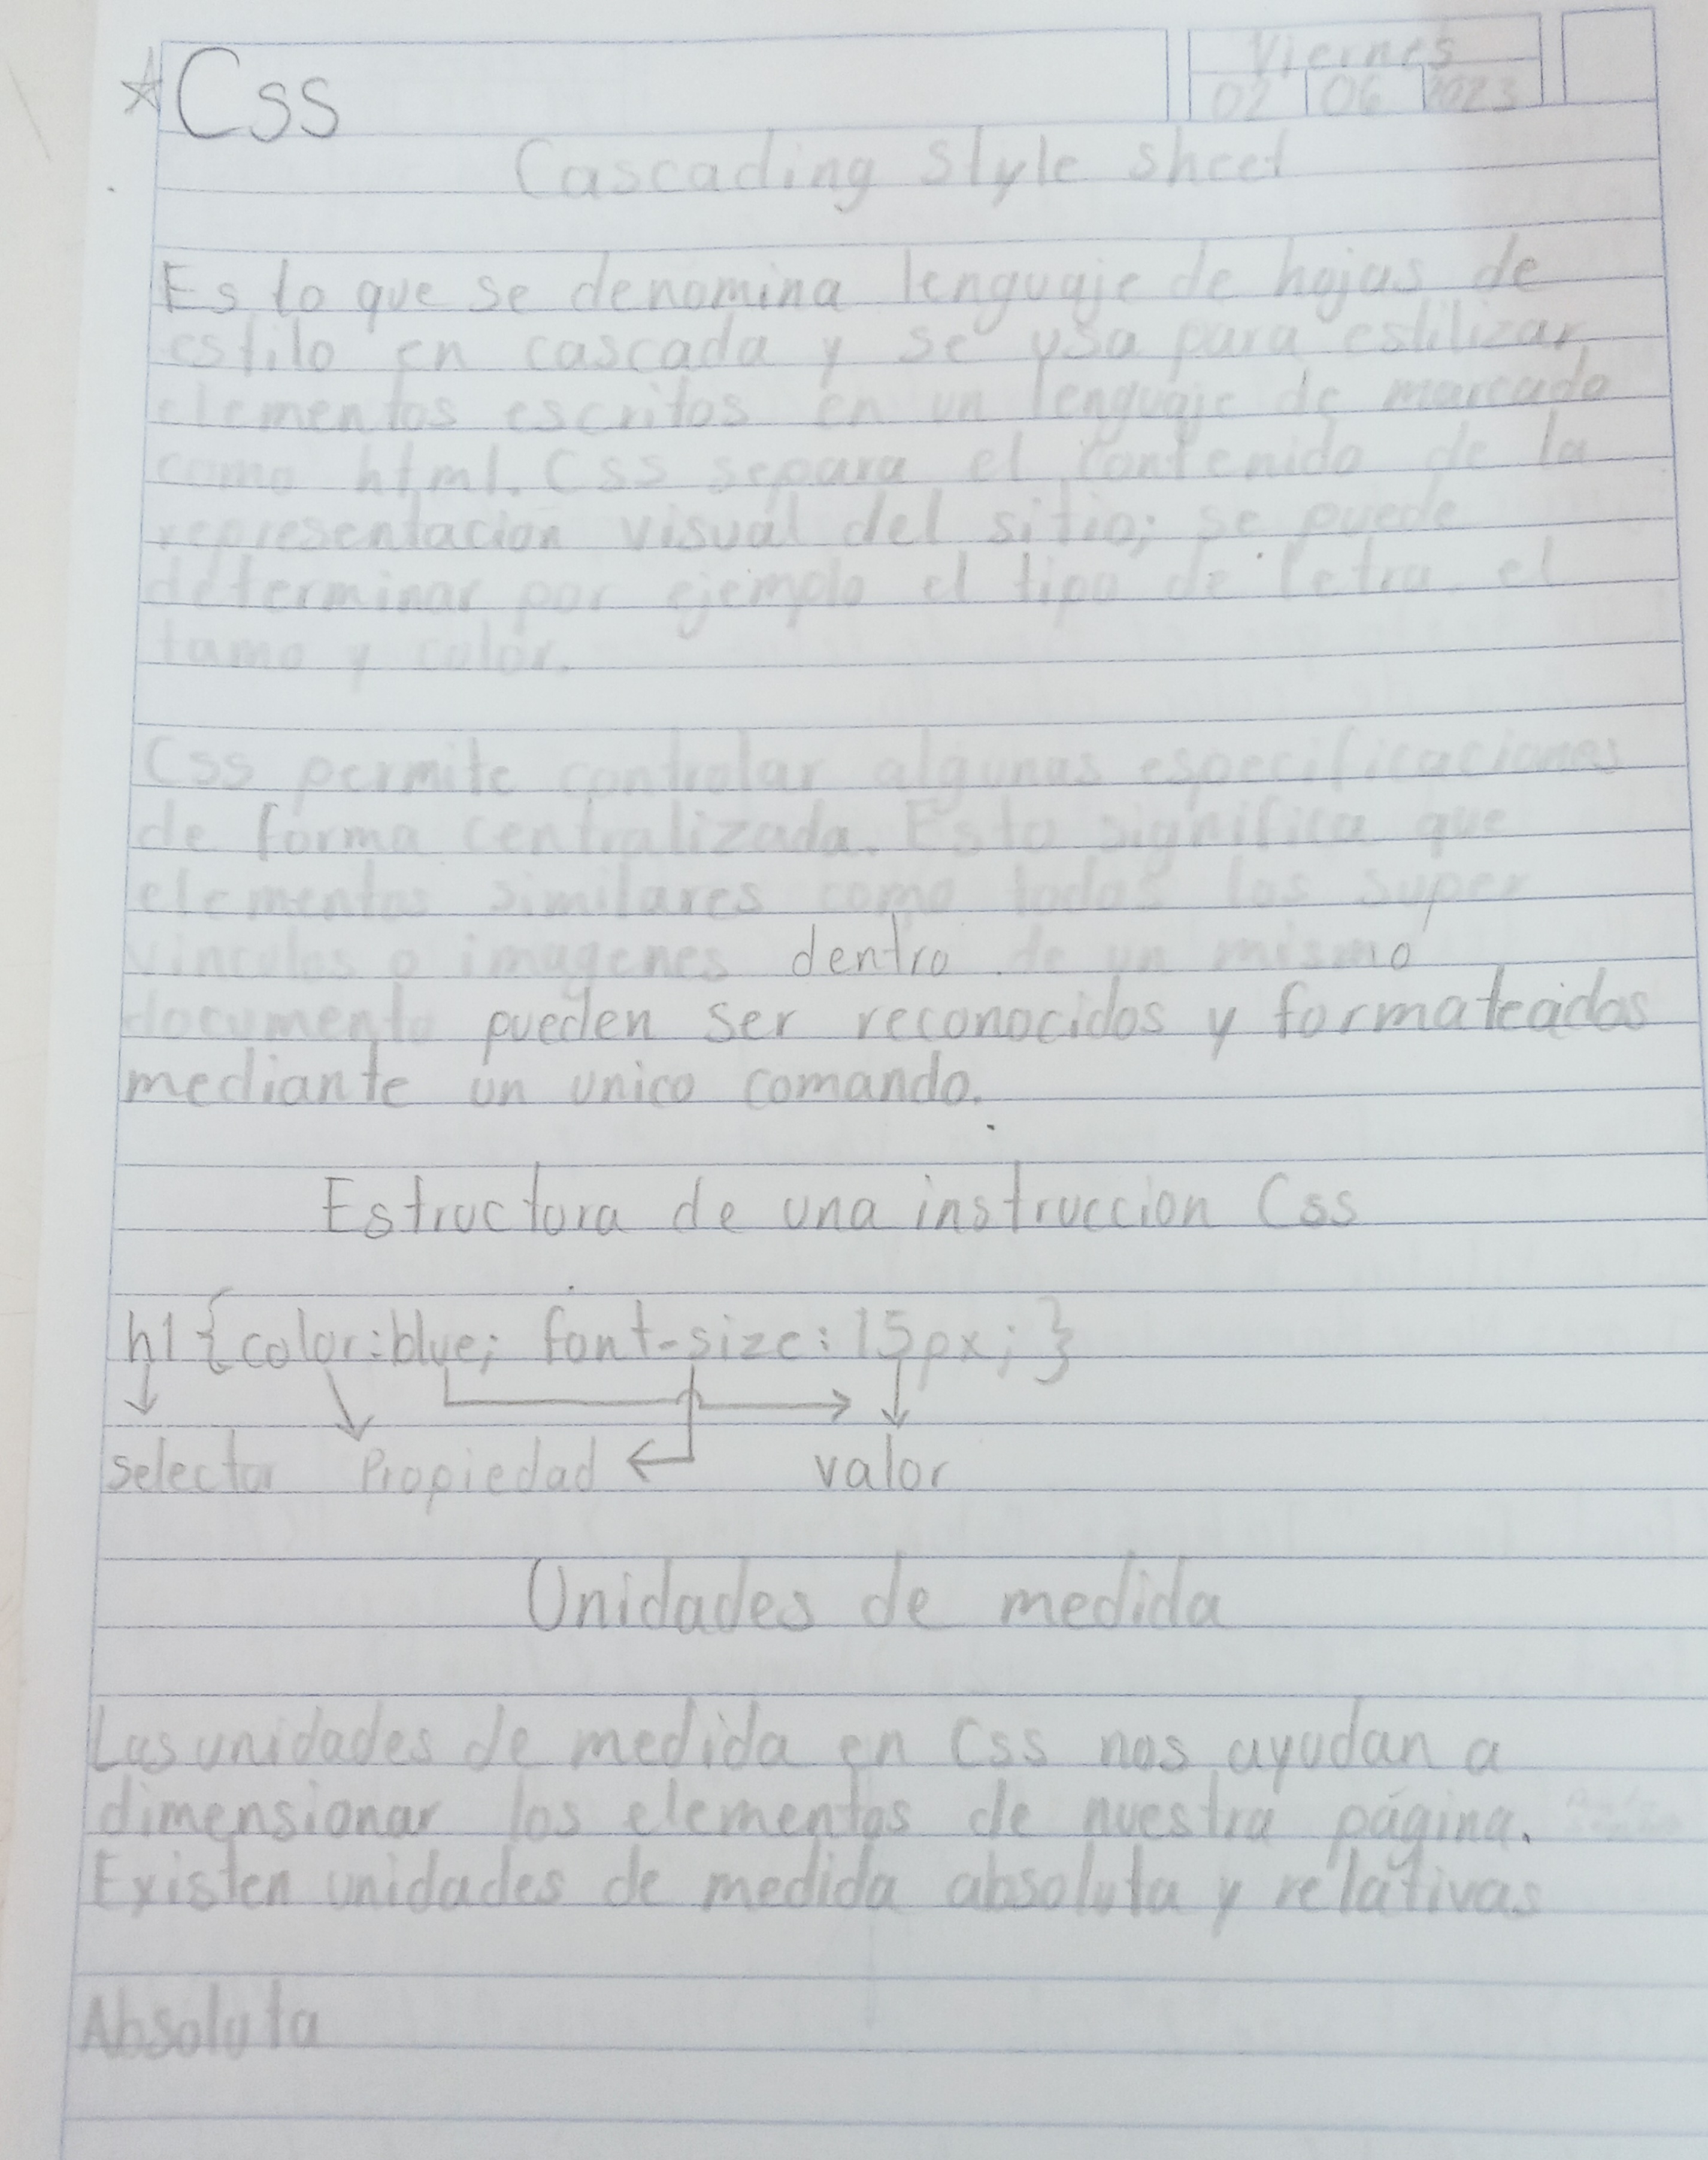 ☆ Css
Viernes
02 06 2023
Cascading style sheet
Es lo que se denomina lenguaje de hojas de
estilo en cascada y se usa para estilizar
elementos escritos en un lenguaje de marcado
como html. Css separa el contenido de la
representacion visual del sitio; se puede
determinar por ejemplo el tipo de letra, el
tamo y color.
Css permite controlar algunas especificaciones
de forma centralizada. Esto significa que
elementos similares como todos los super
vinculos o imagenes dentro de un mismo
documento pueden ser reconocidos y formateados
mediante un unico comando.
Estructura de una instruccion Css
h1{color:blue; font-size:15px;}
selector Propiedad valor
Unidades de medida
Las unidades de medida en Css nos ayudan a
dimensionar los elementos de nuestra página.
Existen unidades de medida absoluta y relativas
Absoluta